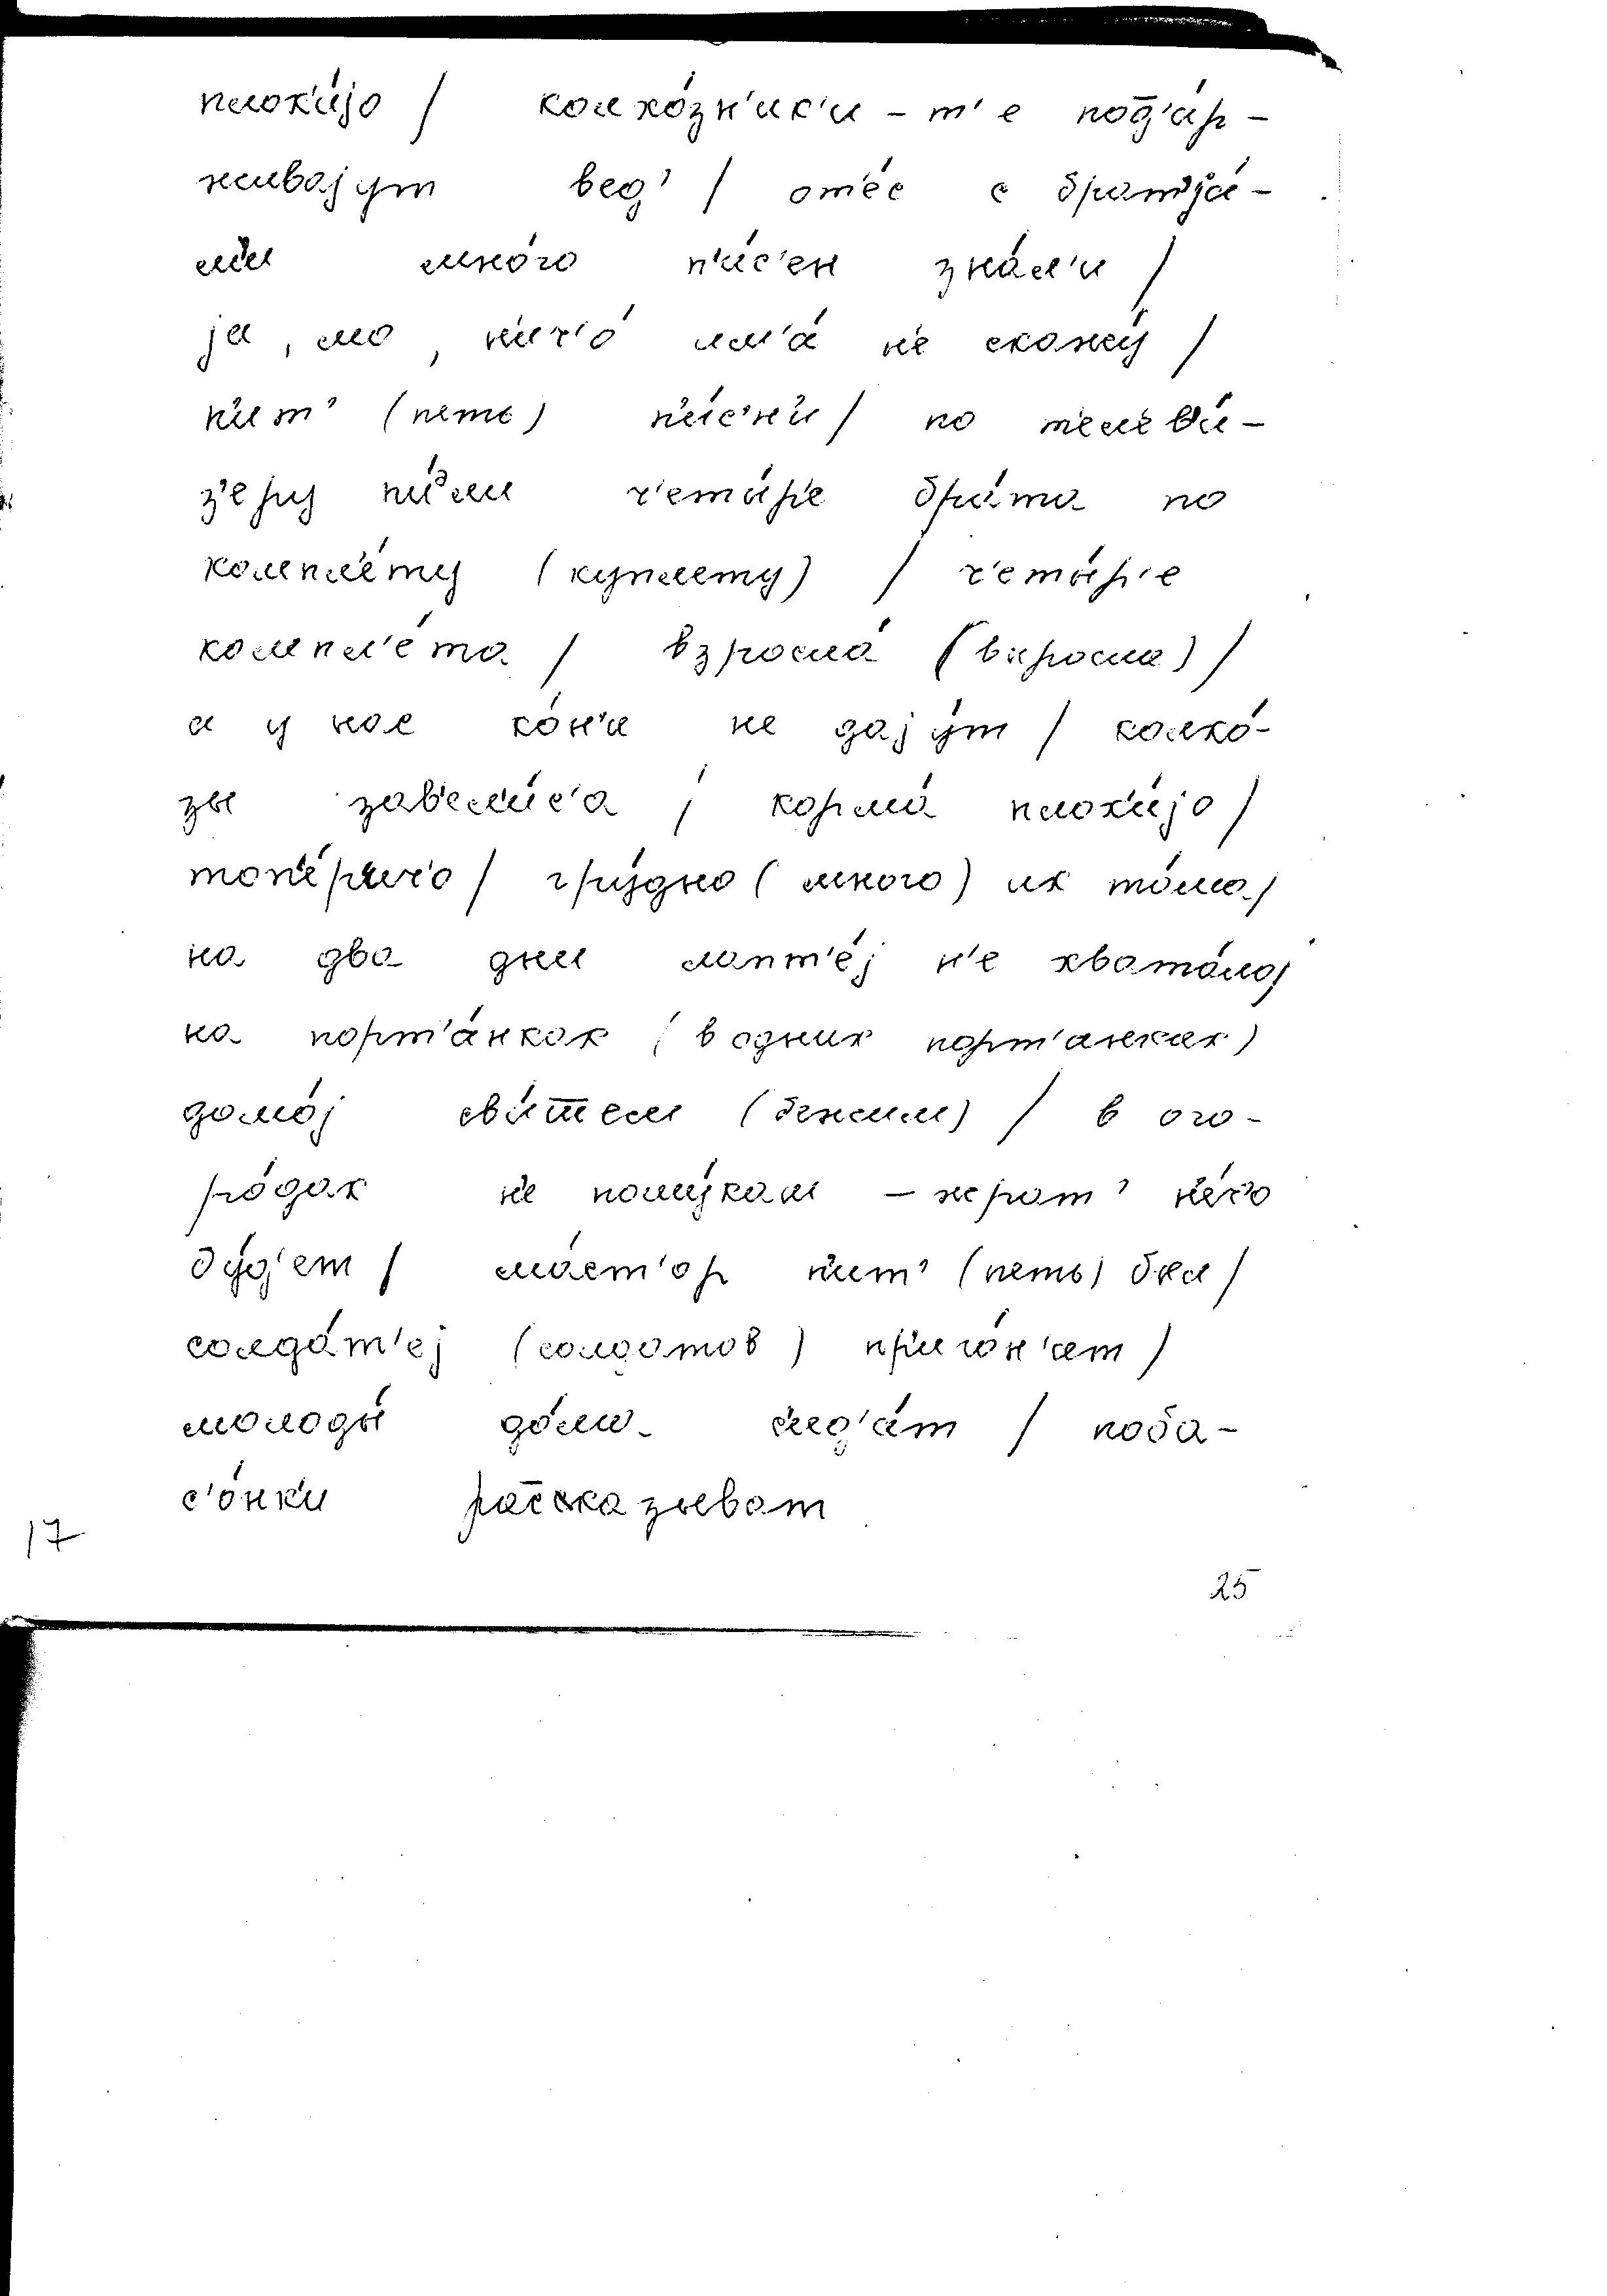 плох'и́jо / колхо́зн'ик'и - т'е подд'а́р-
живаjут вед' / оте́с с брат'jа́-
м'и мно́го п'и́с'ен зна́л'и /
ja, мо, нич'о́ им'а́ н'е скажу́ /
п'ит' (петь) п'и́с'н'и / по т'ел'ев'и́-
з'еру п'и́ли ч'еты́р'е бра́та по
компл'е́ту (куплету) / ч'еты́р'е
компл'е́та / взросла́ (выросла) /
а у нас ко́н'и не даjу́т / колхо́-
зы зав'ели́с'а / корма́ плох'и́jо /
топ'е́рича / гру́дно (много) их то́мо /
на два дни лапт'е́j н'е хвата́ло /
на порт'а́нках (в одних порт'анках)
домо́j сви́щем (бежим) / в ого-
ро́дах н'е полу́кам - жрат' н'е́ч'о
бу́д'ет / ма́ст'ор п'ит' (петь) был /
солда́т'еj (солдатов) пр'иго́н'ат /
молоды́ до́ма с'ид'а́т / поба-
с'о́нк'и расска́зыват
17
25